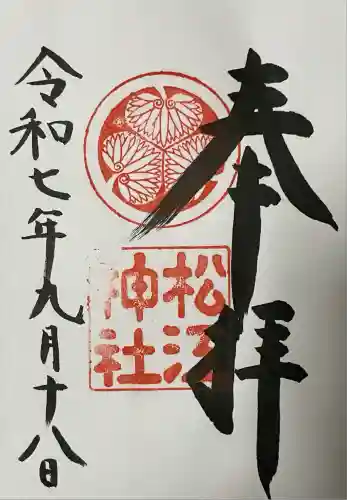 奉拝
松沼
神社
令和七年九月十八日